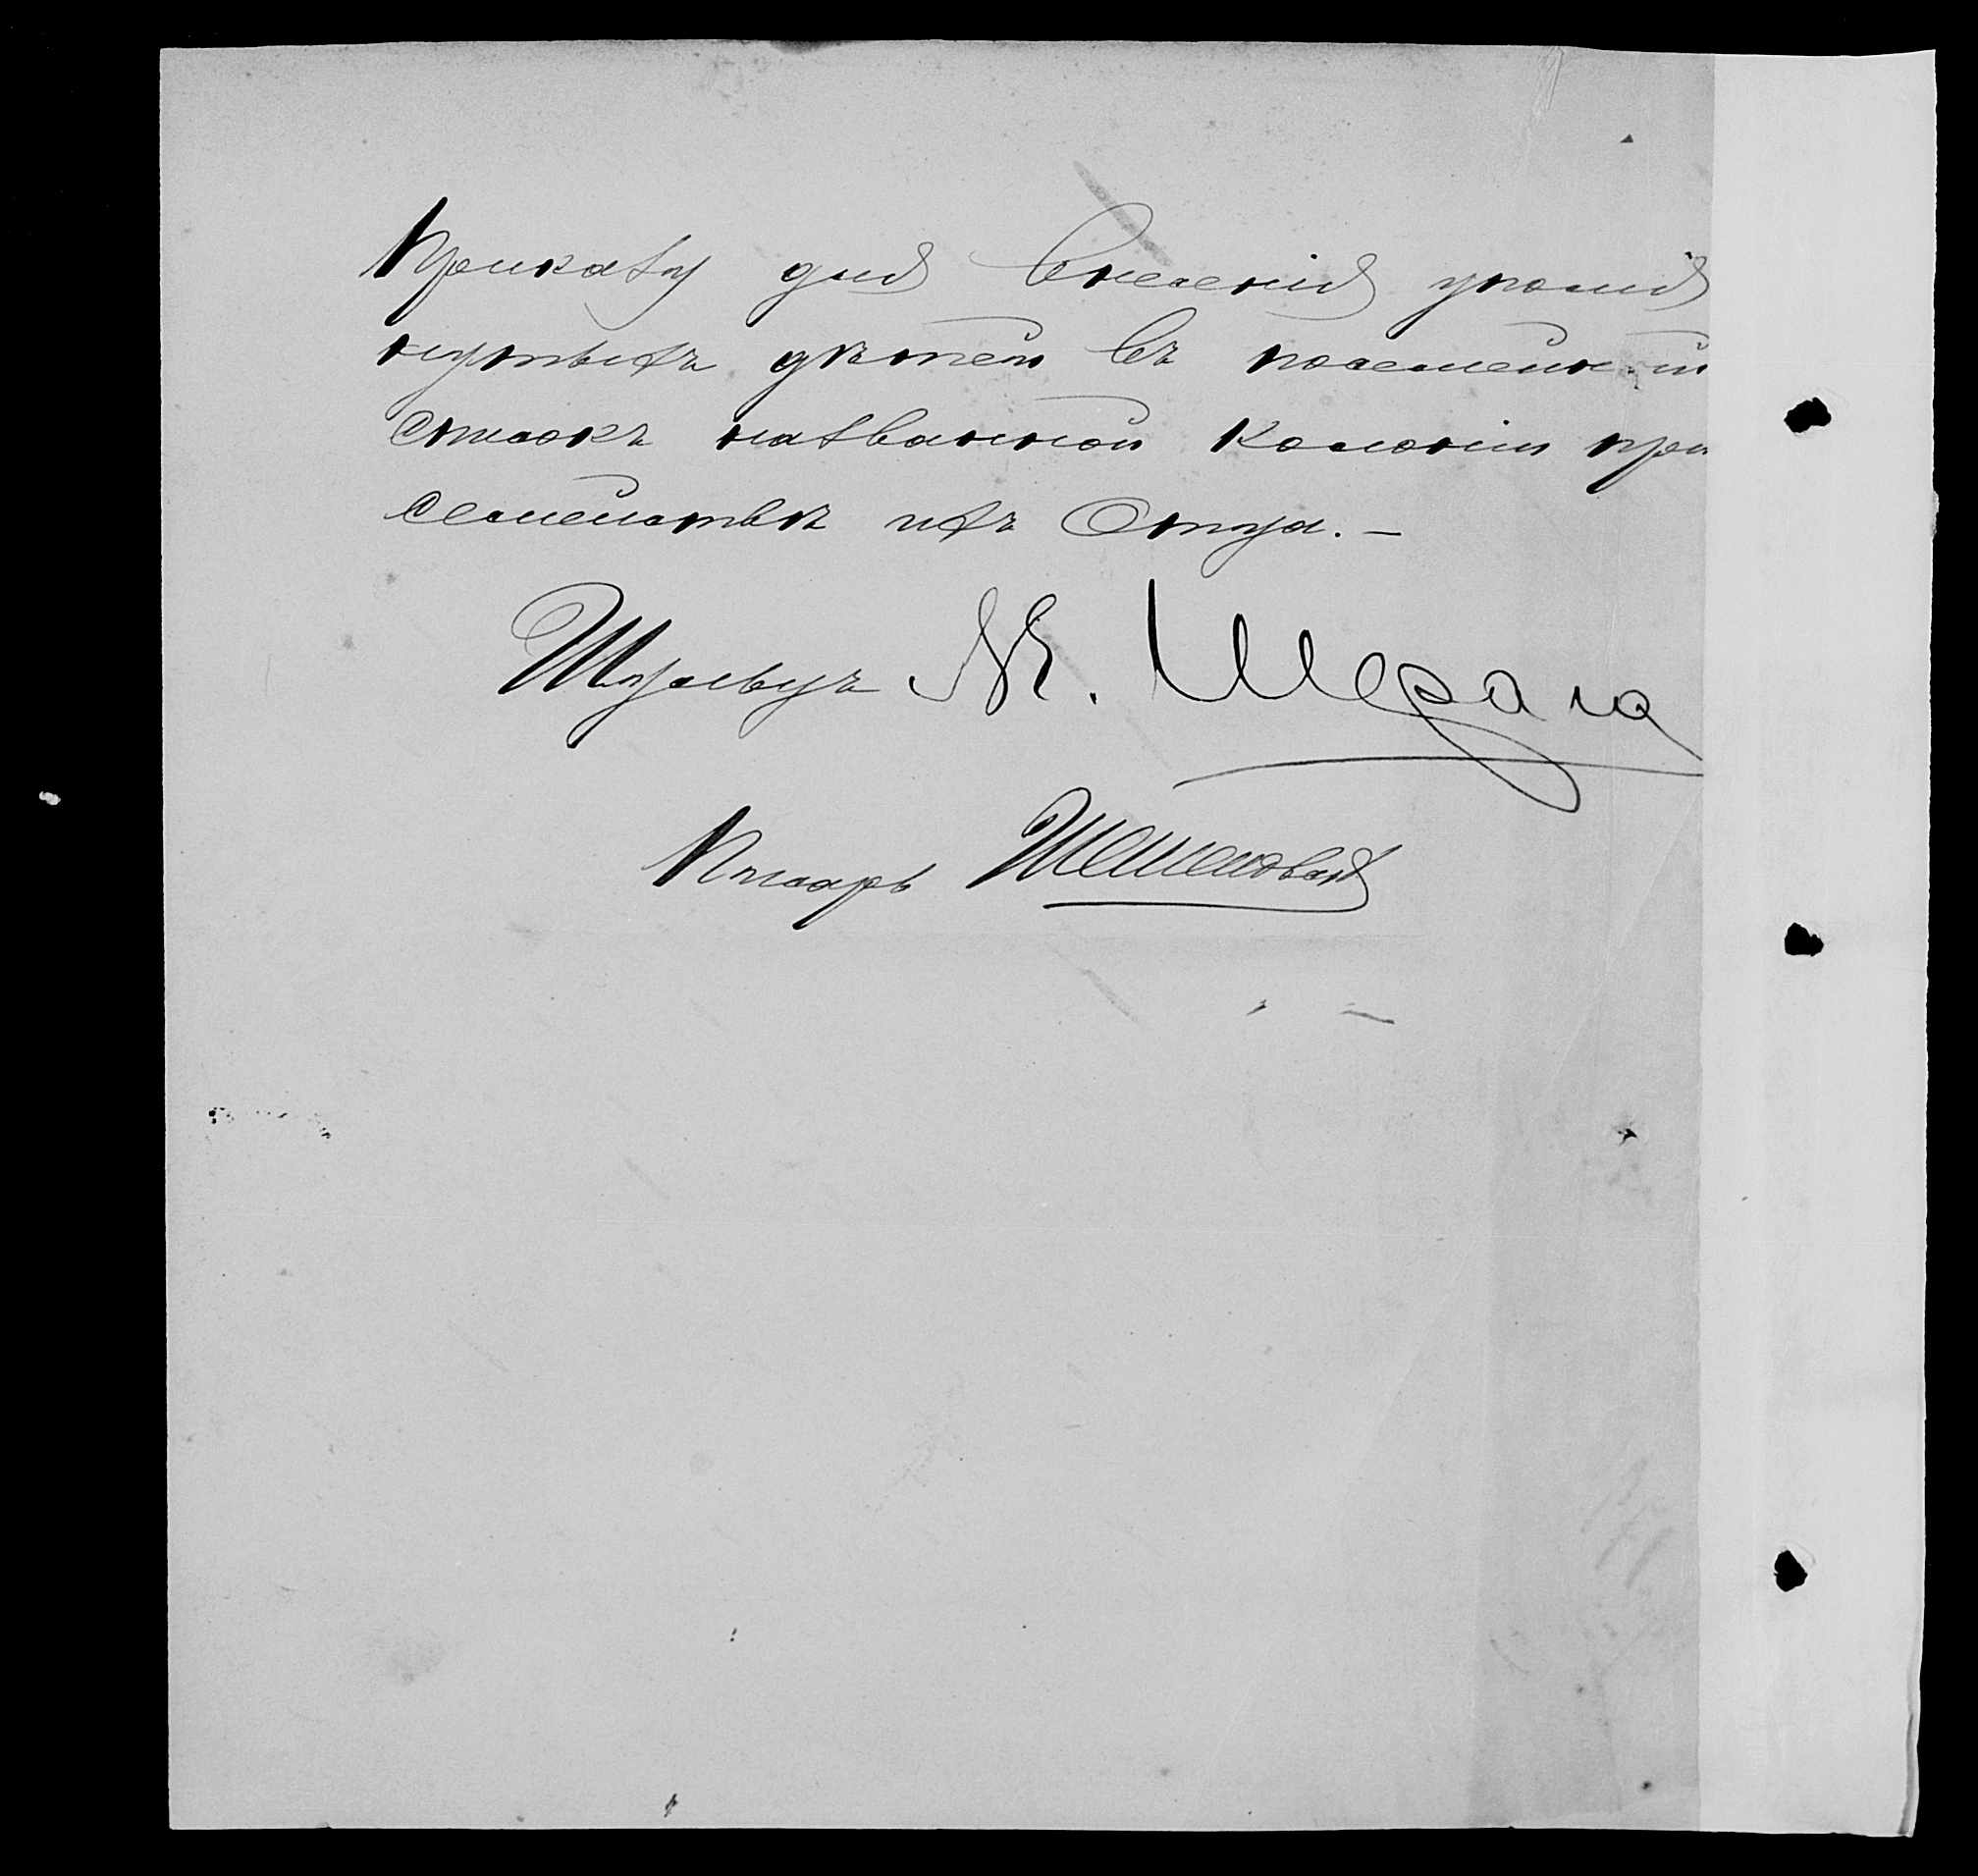 Приказу для внесенія упомя
нутыхъ дѣтей въ посемейный
списокъ названной Колоніи при
семействѣ ихъ Отца. –
Шульцъ М. Шерага
Писарь